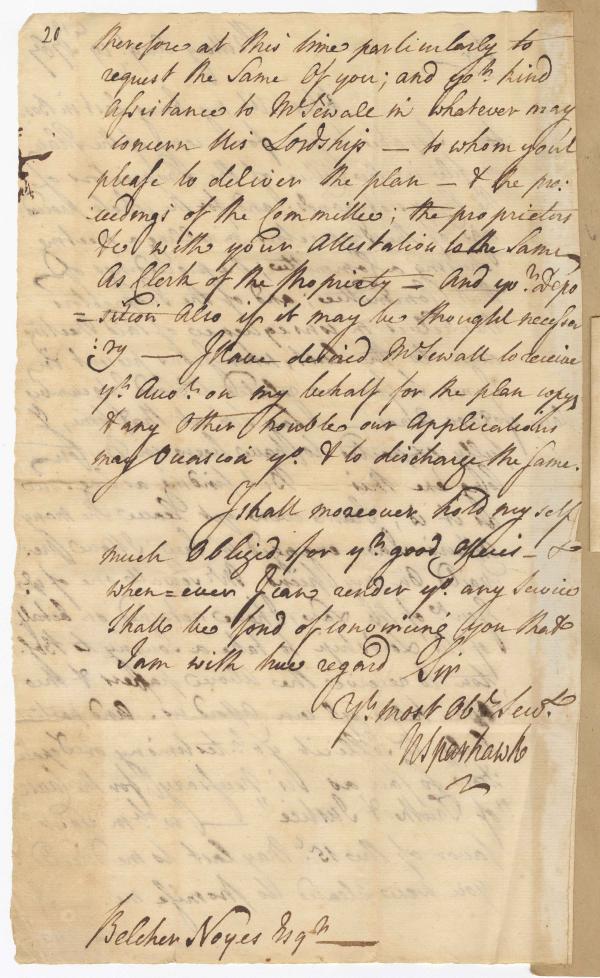 20
therefore at this time particularly to
request the Same Of you; and yo.r kind
Assistance to Mr Sewall in whatever may
concern His Lordship — to whom you'l
please to deliver the plan — & the pro:
:ceedings of the Committee; the proprietors
&c with your Attestation to the Same
As Clerk of the Propriety — And yo.r Depo
=sition Also if it may be thought necessa
:ry — I have desired Mr Sewall to receive
yr. Acco.t on my behalf for the plan copys
& any Other trouble our Applications
may Occasion yo. & to discharge the same.
I shall moreover hold my self
much Obliged for yr. good Offices — &
when=ever I can render yo. any Service
Shall be fond of convincing you that
I am with true regard Sir
Yr. most Ob.t Serv.t
N Sparhawk
Belcher Noyes Esqr. —